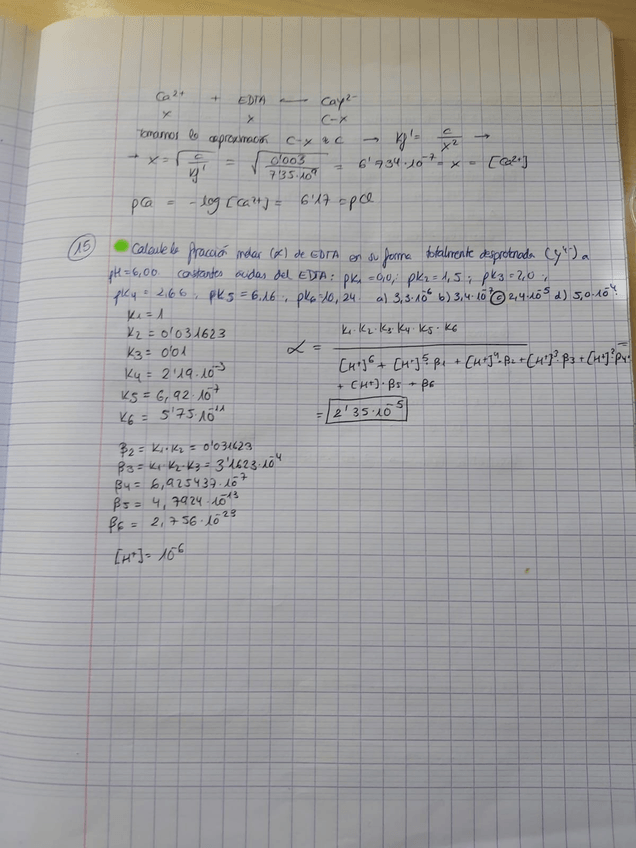 Ca²⁺ + EDTA ⟵ CaY²⁻
x x C-x
Tomamos la aproximación C-x ≈ C → Kf' = C/x² →
→ x = √(C/Kf') = √(0'003/7'35·10⁹) = 6'734·10⁻⁷ = x = [Ca²⁺]
pCa = -log [Ca²⁺] = 6'17 = pCa
15 Calcule la fracción molar (α) de EDTA en su forma totalmente desprotonada (Y⁴⁻) a
pH=6,00 constantes acidas del EDTA: pK₁=0,0; pK₂=1,5; pK₃=2,0;
pK₄=2,66, pK₅=6,16, pK₆=10,24. a) 3,3·10⁻⁶ b) 3,4·10⁻⁷ c) 2,4·10⁻⁵ d) 5,0·10⁻⁴.
K₁=1
K₂=0'031623
K₃=0'01
K₄=2'19·10⁻³
K₅=6,92·10⁻⁷
K₆=5'75·10⁻¹¹
α = K₁·K₂·K₃·K₄·K₅·K₆
[H⁺]⁶ + [H⁺]⁵·β₁ + [H⁺]⁴·β₂ + [H⁺]³·β₃ + [H⁺]²β₄+
+ [H⁺]·β₅ + β₆
= 2'35·10⁻⁵
β₂=K₁·K₂=0'031623
β₃=K₁·K₂·K₃=3'1623·10⁻⁴
β₄=6,925437·10⁻⁷
β₅=4,7924·10⁻¹³
β₆=2,756·10⁻²³
[H⁺]=10⁻⁶